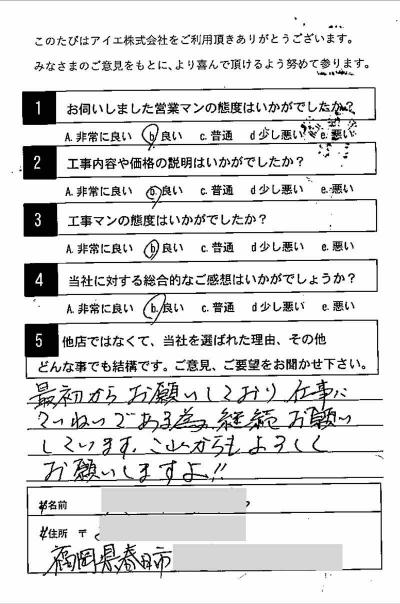 このたびはアイエ株式会社をご利用頂きありがとうございます。
みなさまのご意見をもとに、より喜んで頂けるよう努めて参ります。
1 お伺いしました営業マンの態度はいかがでしたか？
A. 非常に良い b. 良い c. 普通 d 少し悪い e. 悪い
2 工事内容や価格の説明はいかがでしたか？
A. 非常に良い b. 良い c. 普通 d 少し悪い e. 悪い
3 工事マンの態度はいかがでしたか？
A. 非常に良い b. 良い c. 普通 d 少し悪い e. 悪い
4 当社に対する総合的なご感想はいかがでしょうか？
A. 非常に良い b. 良い c. 普通 d 少し悪い e. 悪い
5 他店ではなくて、当社を選ばれた理由、その他
どんな事でも結構です。ご意見、ご要望をお聞かせ下さい。
最初からお願いしており 仕事に
ていねいである為 継続お願い
しています。これからもよろしく
お願いしますよ!!
お名前
ご住所 〒
福岡県春日市